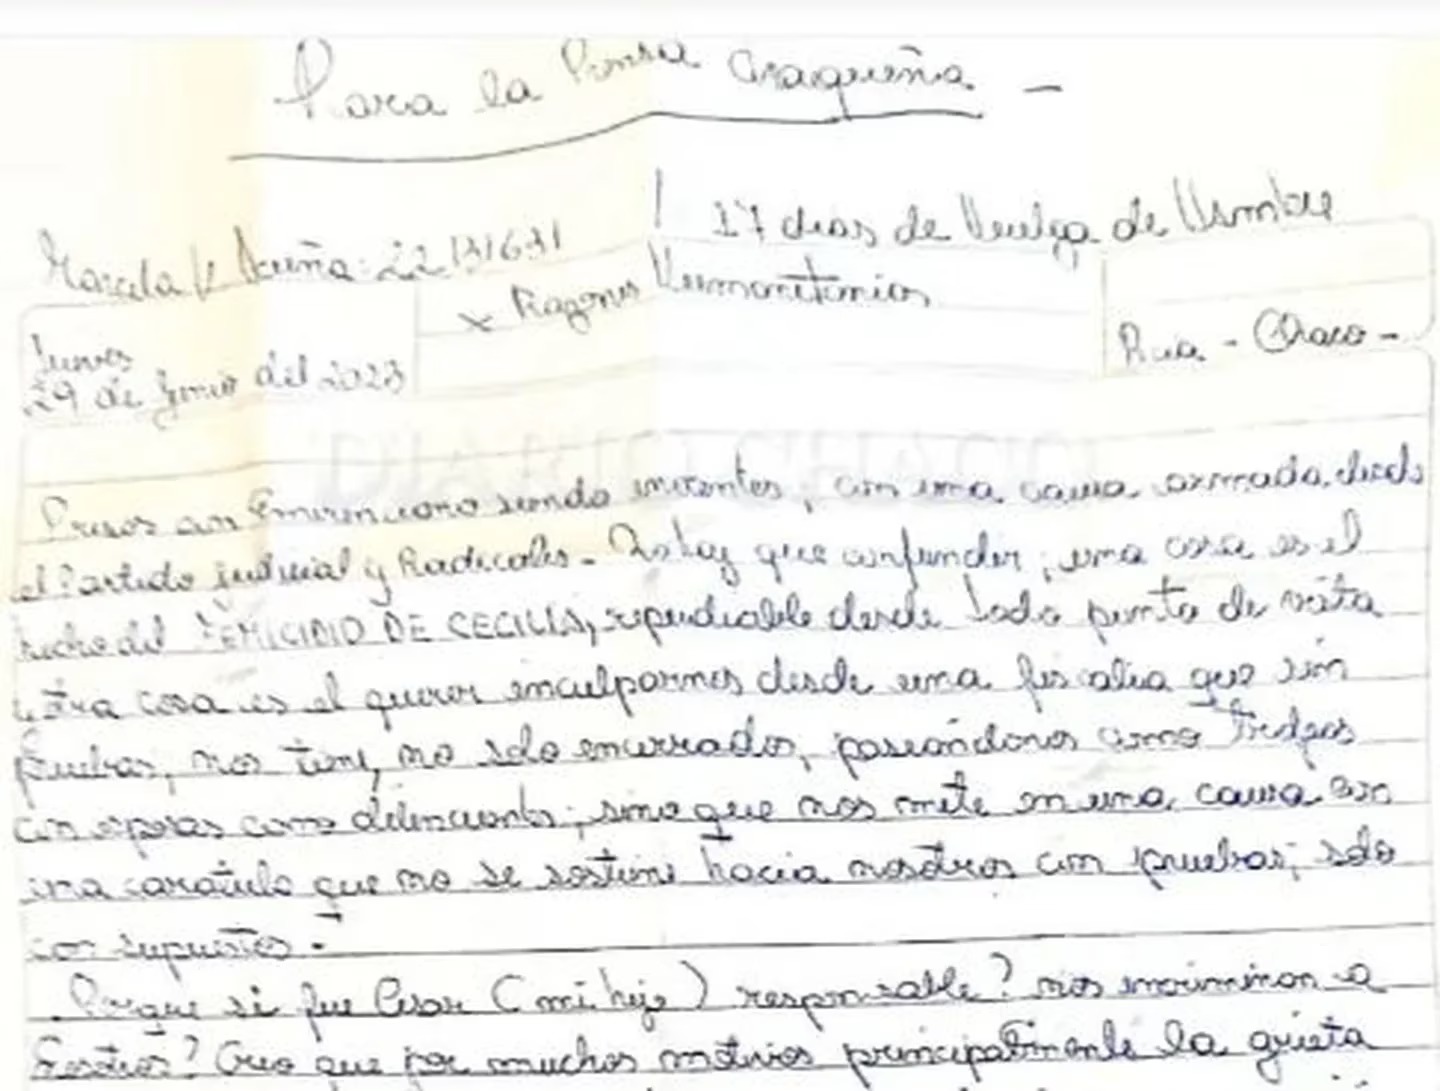 Para la Prensa Chaqueña -
17 días de Huelga de Hambre
Marcela V Acuña: 22
x Razones Humanitarias
Rcia - Chaco -
Jueves
29 de Junio del 2023
DIARIO CHACO
Presos con siendo inocentes, con una causa armada desde
el Partido judicial y Radicales - No hay que confundir, una cosa es el
hecho del FEMICIDIO DE CECILIA, repudiable desde todo punto de vista
y otra cosa es el querer inculparnos desde una fiscalia que sin
Pruebas, nos tiene, no solo encerrados, paseandonos como
con esposas como delincuentes, sino que nos mete en una causa con
una caratula que no se sostiene hacia nosotros con pruebas, solo
con supuestos -
Porque si fue Cesar (mi hijo) responsable? nos incriminan a
nosotros? Creo que por muchos motivos principalmente la grieta